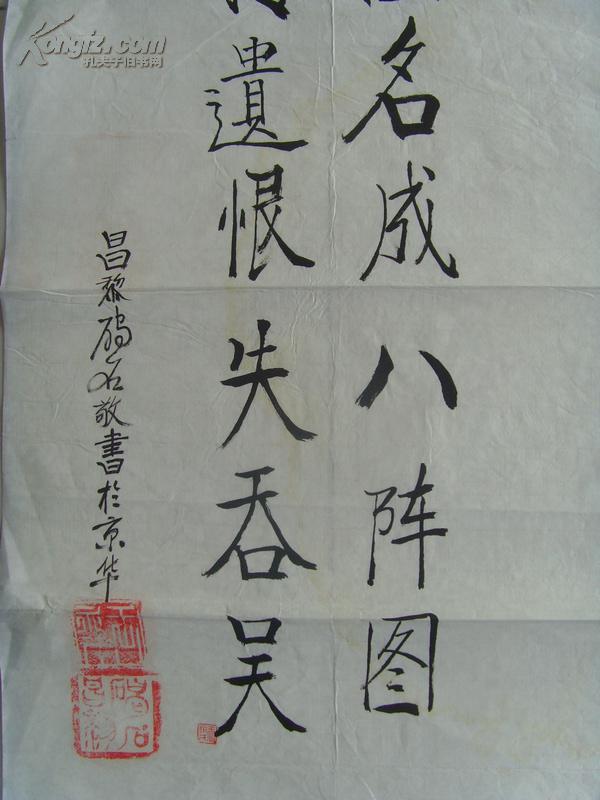 名成八阵图
遺恨失吞吴
昌黎碣石敬書於京华
Kongfz.com
孔夫子旧书网